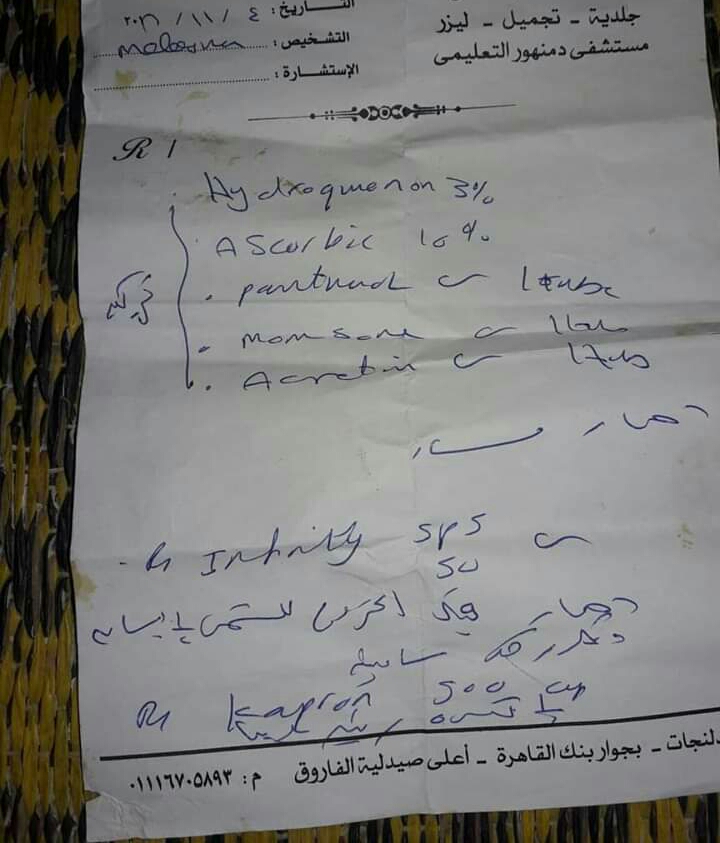 جلدية - تجميل - ليزر
مستشفى دمنهور التعليمى
التاريخ : ٤ / ١١ /
التشخيص :
الإستشارة :
R /
Hydroquenon 3%
Ascorbic 10%
panthenol 1 tube
momsone 1 tub
Acretin 1 tub
تركيب
دهان مساء
R Infinity SPS
50
دهان قبل التعرض للشمس
R kapron 500 cap
الدلنجات - بجوار بنك القاهرة - أعلى صيدلية الفاروق م : ٠١١١٦٧٠٥٨٩٣